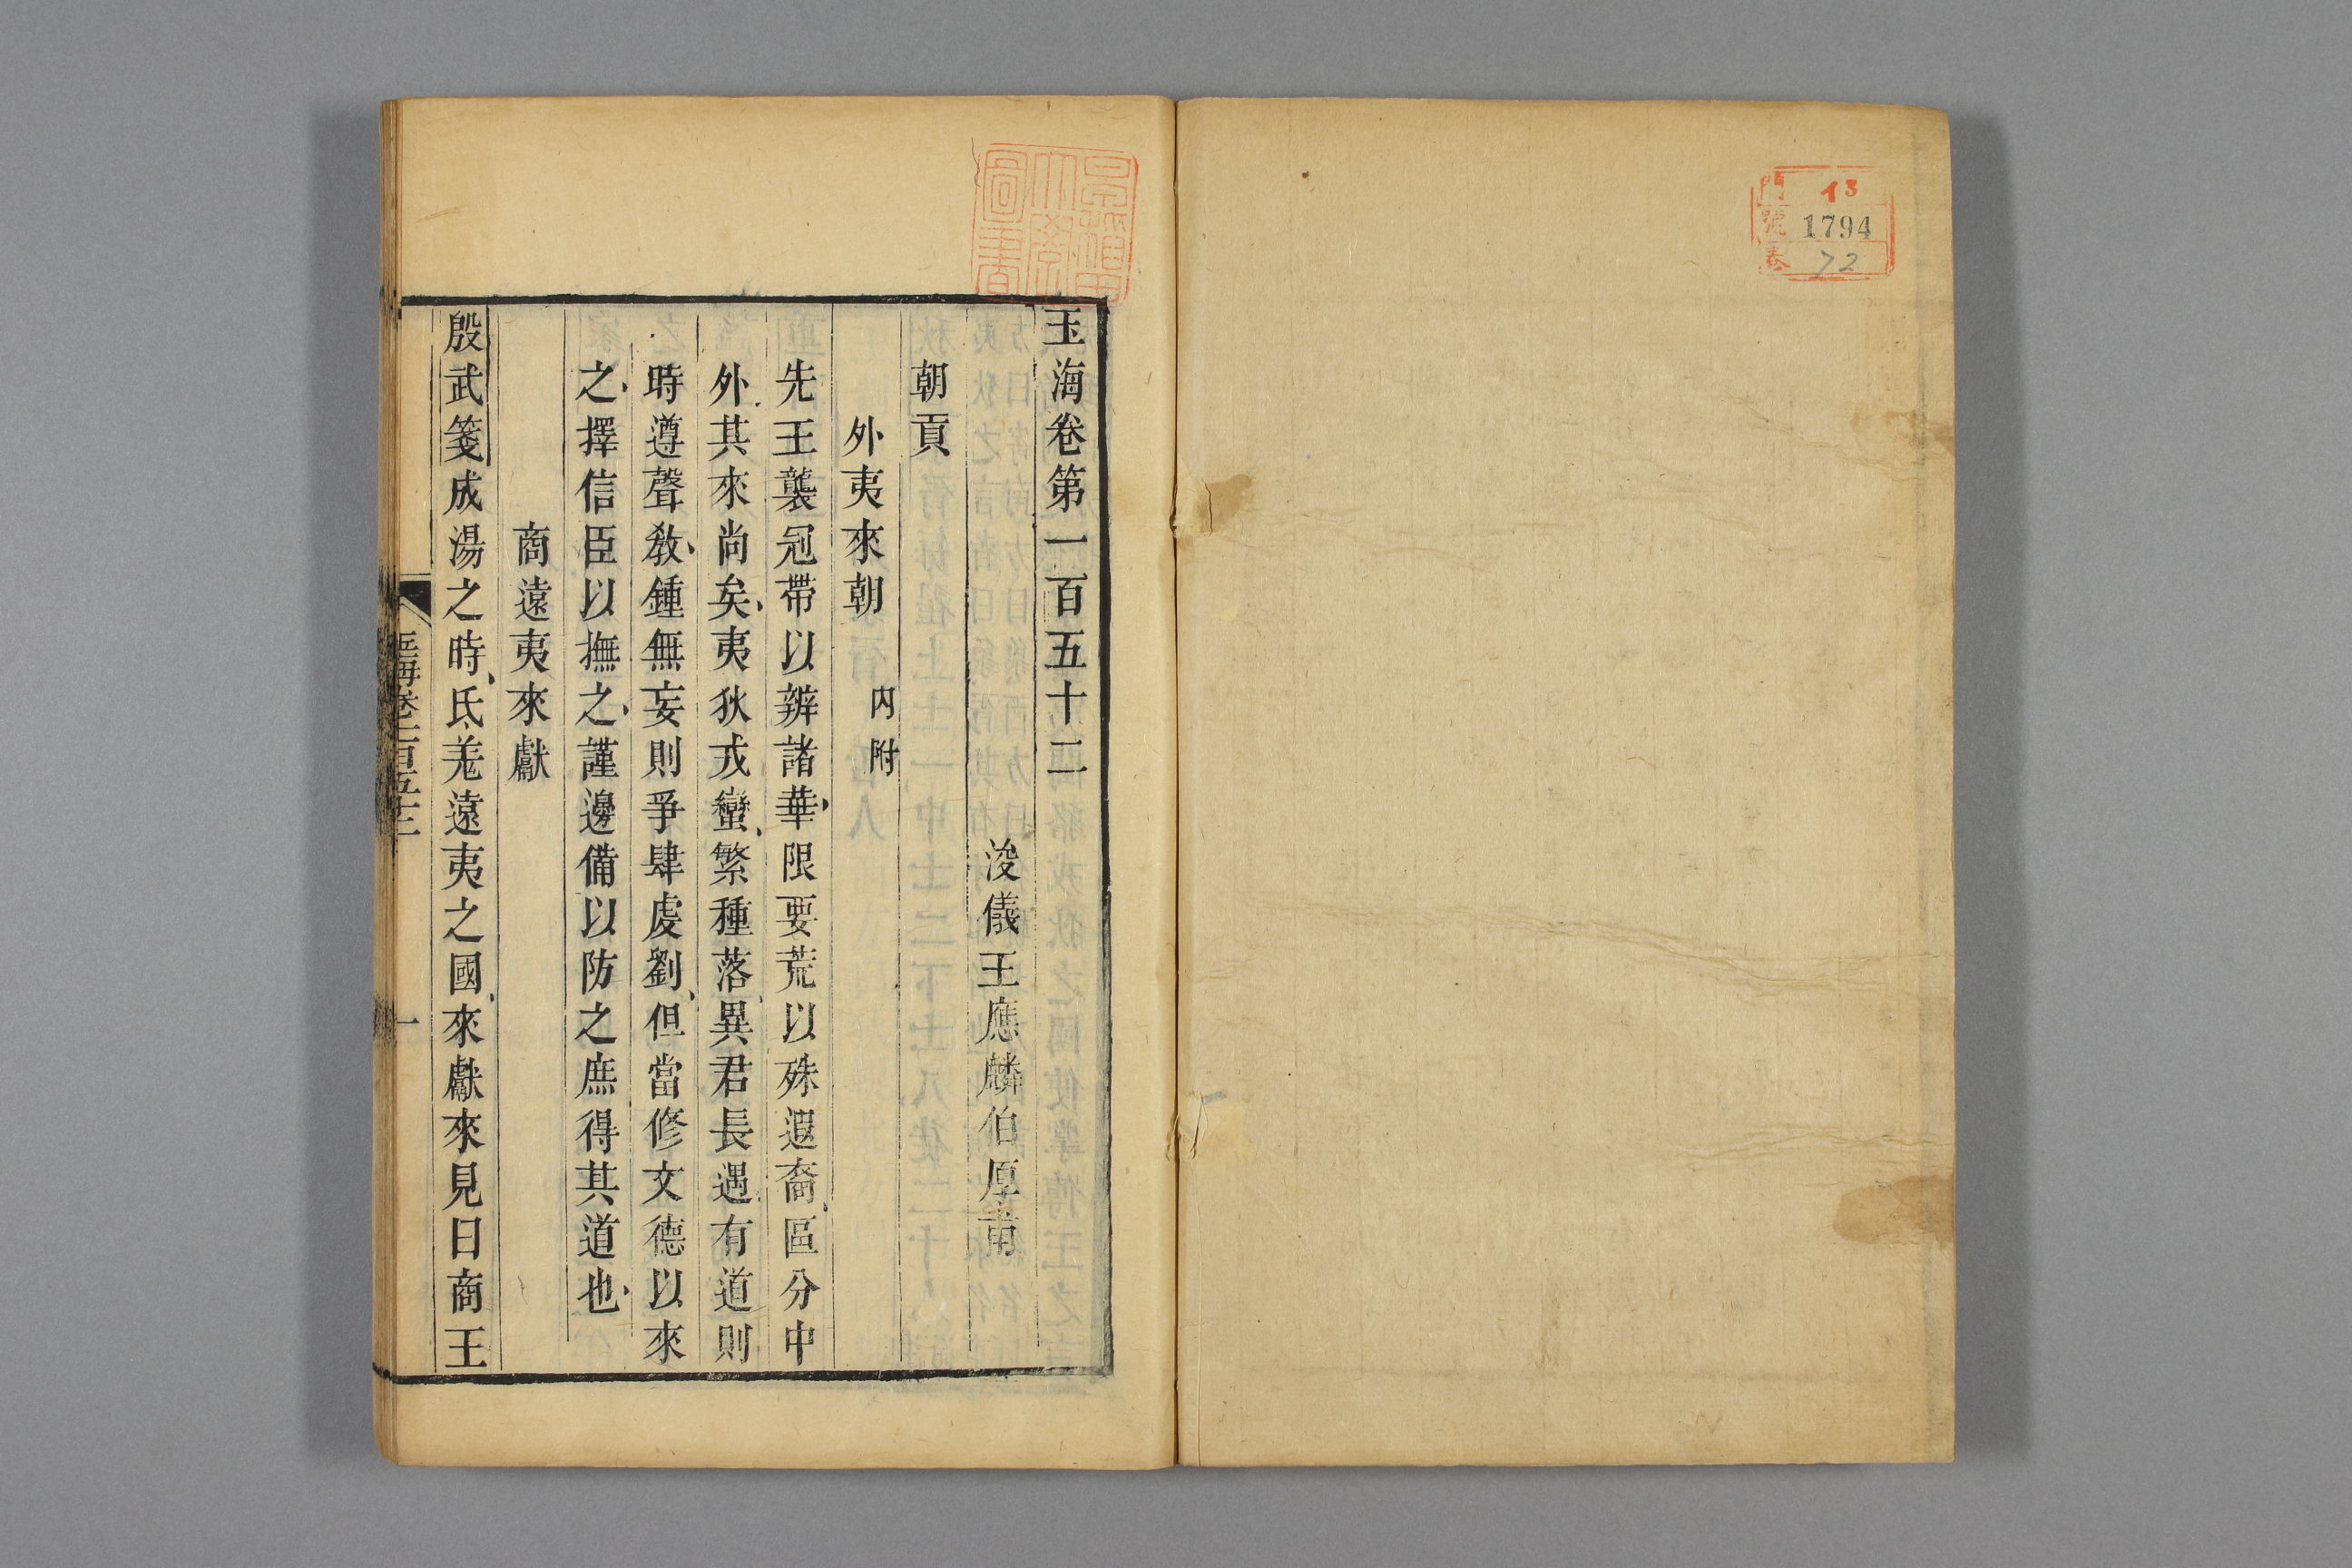 門 13
號 1794
卷 72
早稻田
大學
圖書
玉海卷第一百五十二
浚儀王應麟伯厚甫
朝貢
外夷來朝 内附
先王襲冠帶以辨諸華限要荒以殊遐裔區分中
外其來尚矣夷狄戎蠻繁種落異君長遇有道則
時遵聲敎鍾無妄則爭肆虔劉但當修文德以來
之擇信臣以撫之謹邊備以防之庶得其道也
商遠夷來獻
殷武箋成湯之時氐羌遠夷之國來獻來見曰商王
玉海卷一百五十二 一